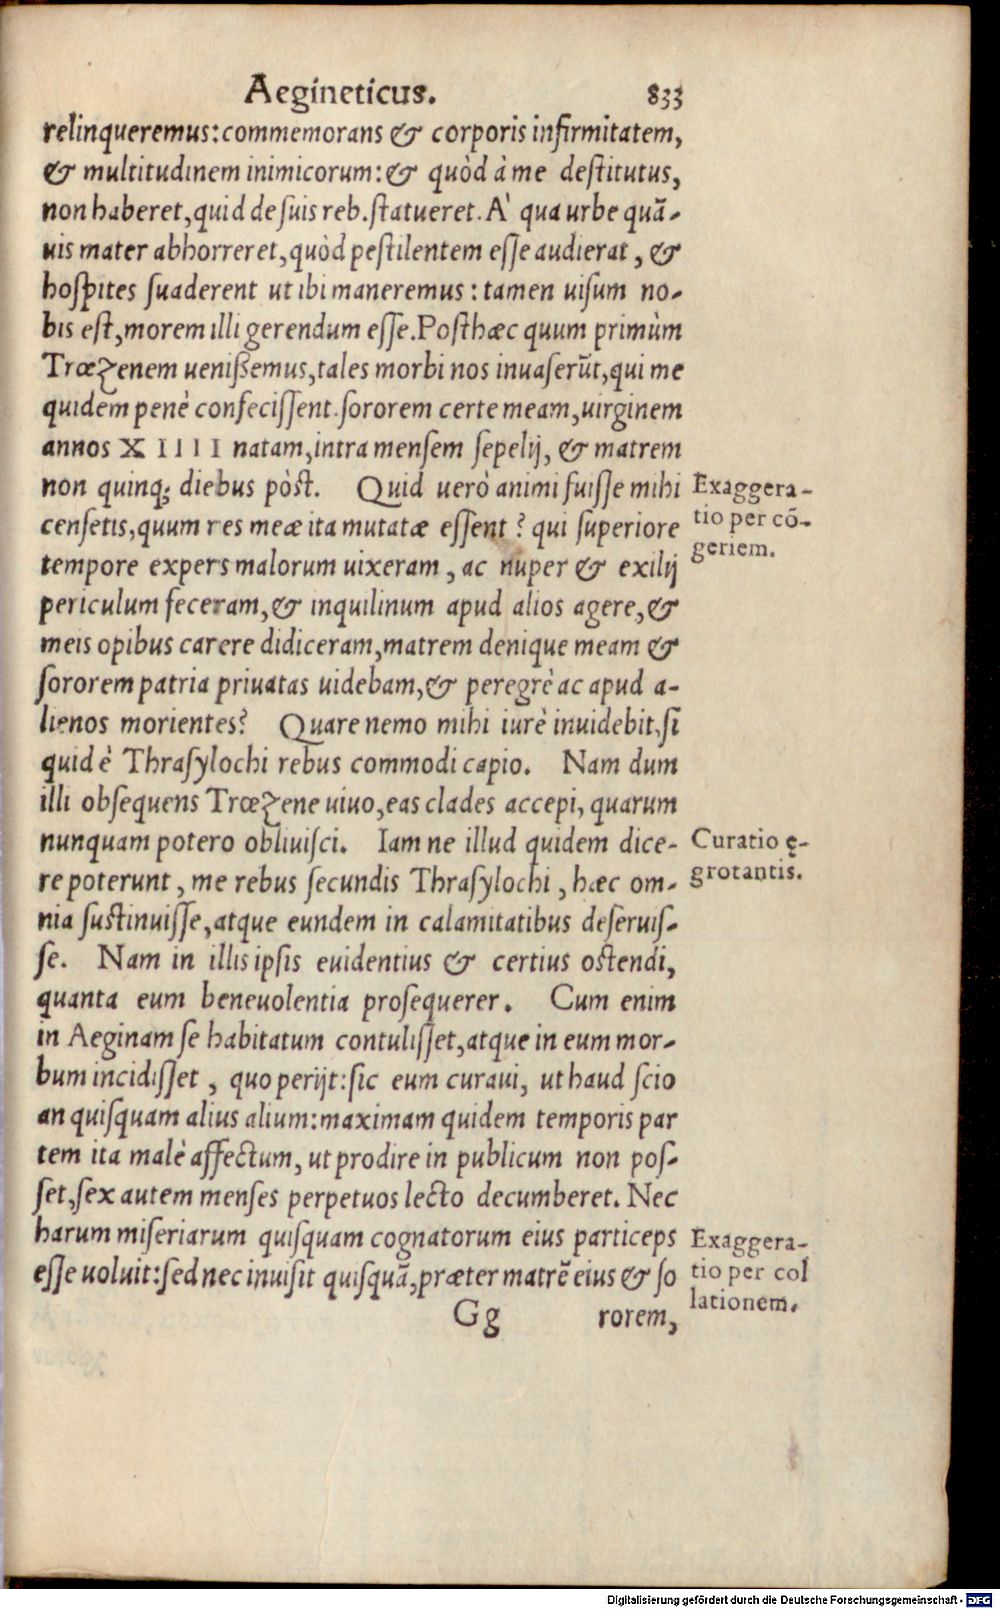 Aegineticus. 833
relinqueremus: commemorans & corporis infirmitatem,
& multitudinem inimicorum: & quòd à me destitutus,
non haberet, quid de suis reb. statueret. A' qua urbe quā-
uis mater abhorreret, quòd pestilentem esse audierat, &
hospites suaderent ut ibi maneremus: tamen uisum no-
bis est, morem illi gerendum esse. Post hæc quum primùm
Trœzenem uenißemus, tales morbi nos inuaserūt, qui me
quidem penè confecissent. sororem certe meam, uirginem
annos XIIII natam, intra mensem sepelij, & matrem
non quinq; diebus pòst. Quid uerò animi fuisse mihi
Exaggera-
tio per cō-
geriem.
censetis, quum res meæ ita mutatæ essent? qui superiore
tempore expers malorum uixeram, ac nuper & exilij
periculum feceram, & inquilinum apud alios agere, &
meis opibus carere didiceram, matrem denique meam &
sororem patria priuatas uidebam, & peregrè ac apud a-
lienos morientes? Quare nemo mihi iurè inuidebit, si
quid è Thrasylochi rebus commodi capio. Nam dum
illi obsequens Trœzene uiuo, eas clades accepi, quarum
nunquam potero obliuisci. Iam ne illud quidem dice-
Curatio ę-
grotantis.
re poterunt, me rebus secundis Thrasylochi, hæc om-
nia sustinuisse, atque eundem in calamitatibus deseruis-
se. Nam in illis ipsis euidentius & certius ostendi,
quanta eum beneuolentia prosequerer. Cum enim
in Aeginam se habitatum contulisset, atque in eum mor-
bum incidisset, quo perijt: sic eum curaui, ut haud scio
an quisquam alius alium: maximam quidem temporis par
tem ita malè affectum, ut prodire in publicum non pos-
set, sex autem menses perpetuos lecto decumberet. Nec
harum miseriarum quisquam cognatorum eius particeps
Exaggera-
tio per col
lationem.
esse uoluit: sed nec inuisit quisquā, præter matrē eius & so
Gg rorem,
Digitalisierung gefördert durch die Deutsche Forschungsgemeinschaft - DFG